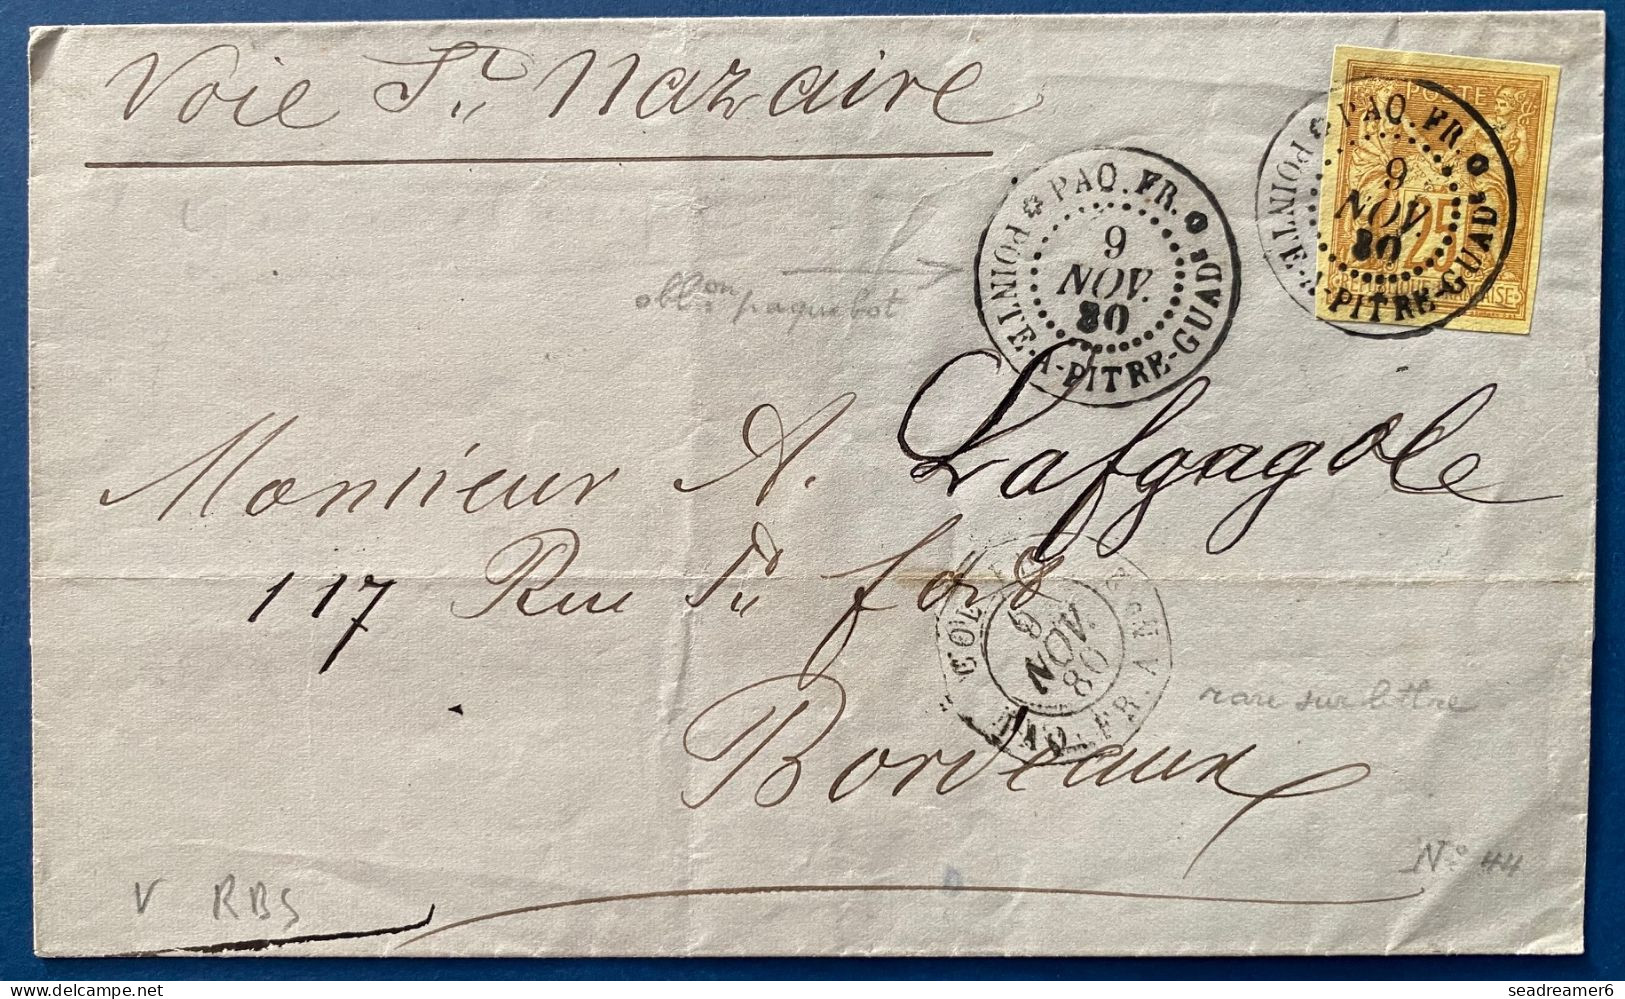 Voie St Nazaire
POSTE
25
PAQ. FR.
POINTE-A-PITRE-GUAD
9
NOV.
80
PAQ. FR.
POINTE-A-PITRE-GUAD
9
NOV.
80
obl.on paquebot
Monsieur A. Lafgagole
117 Rue Ste foÿ
COL.
PAQ. FR. A
9
NOV
80
rare sur lettre
Bordeaux
No 44
V RBS
www.delcampe.net
seadreamer6